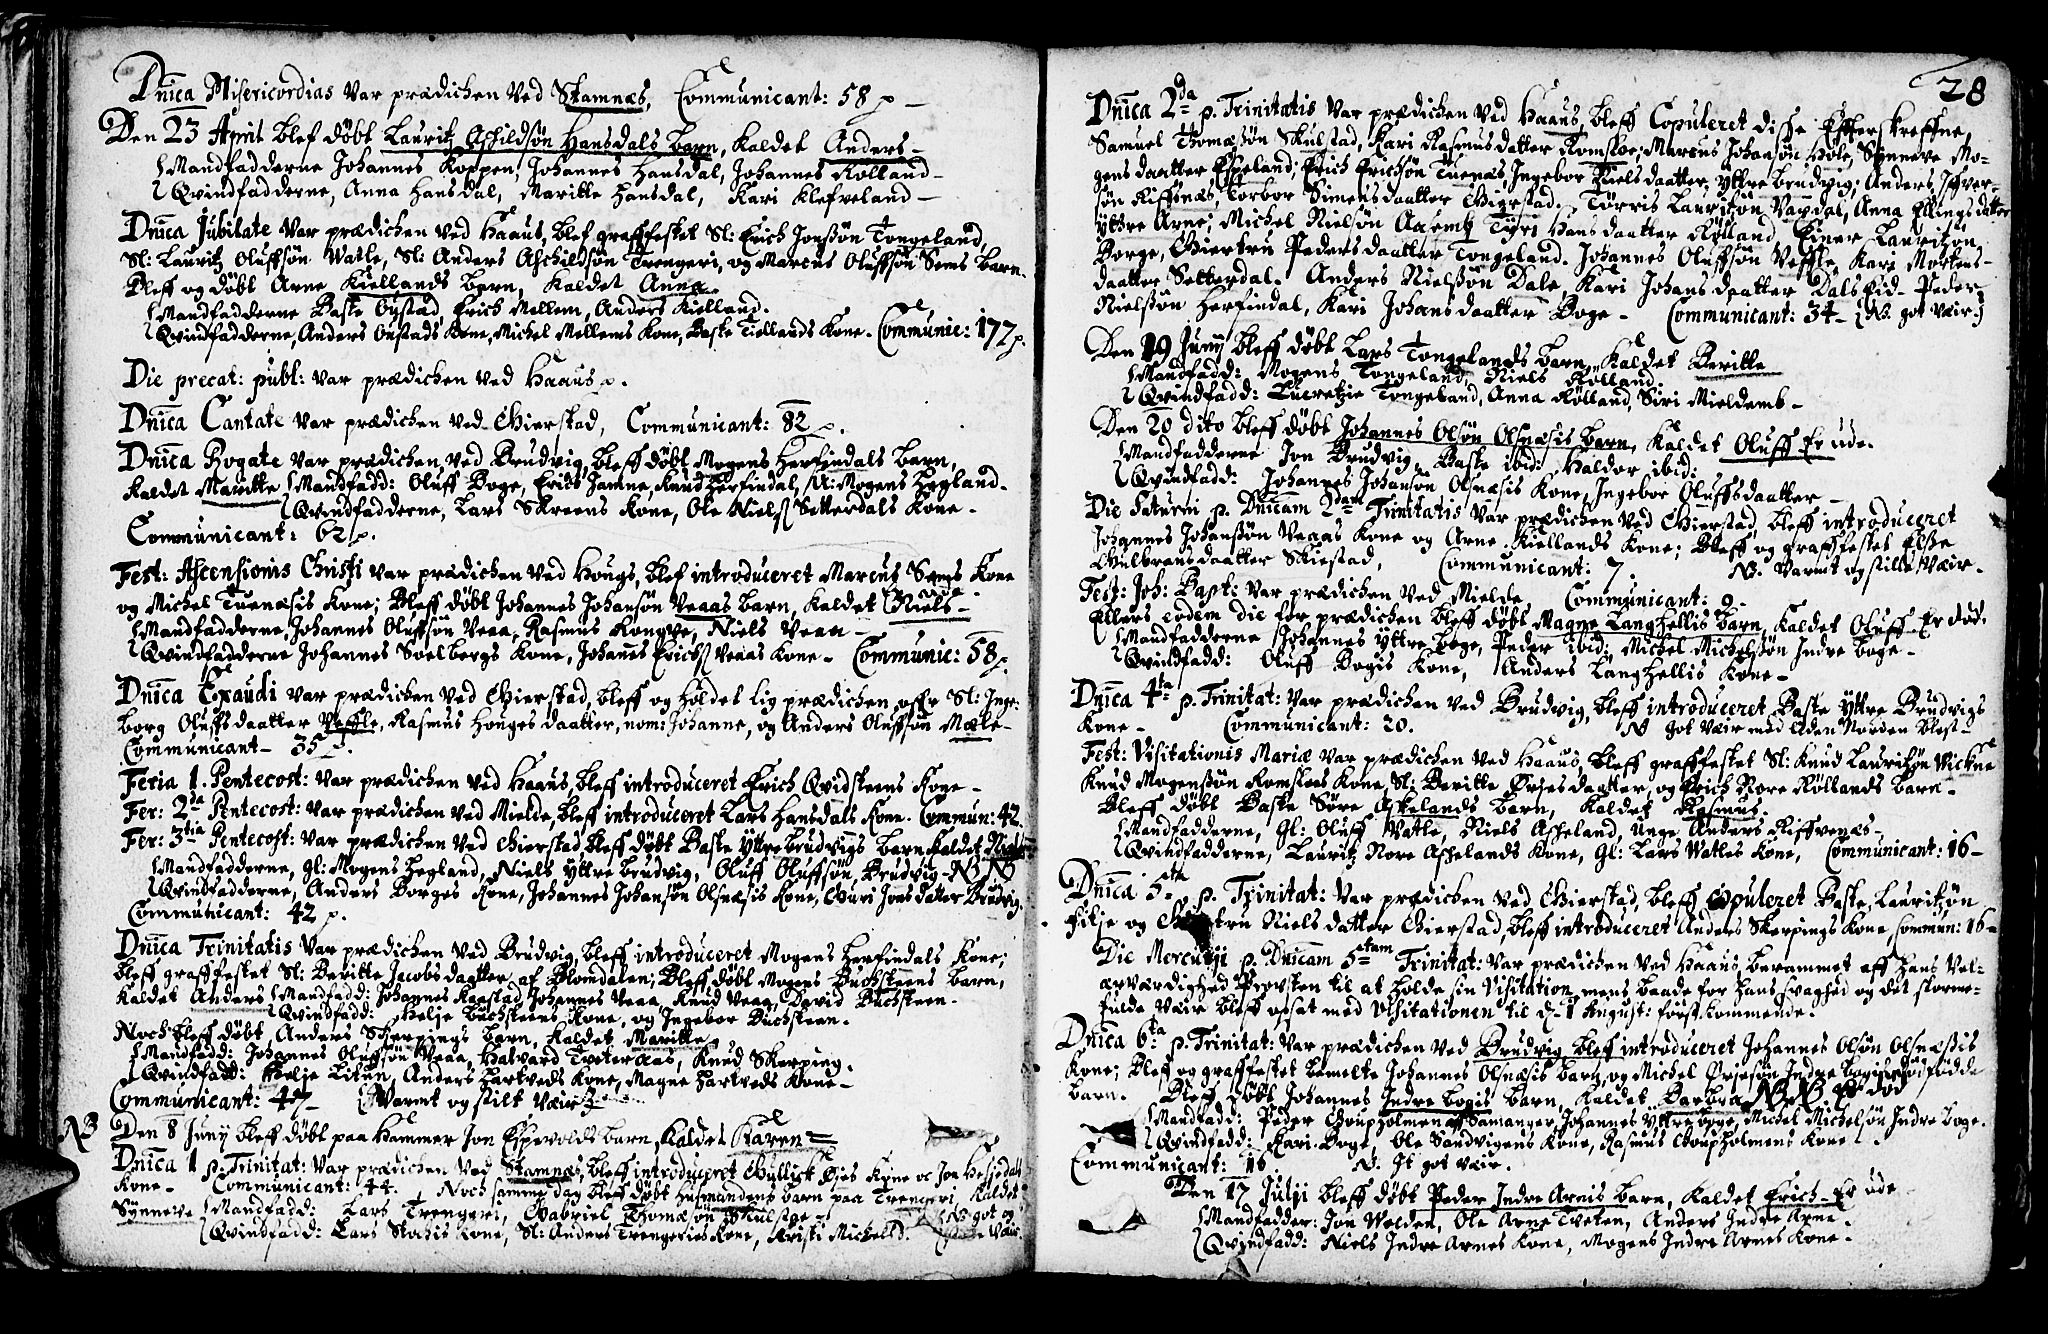 Dnica Misericordias var prædichen ved Stamnæs, Communicant: 58 p
Den 23 April blef døbt Lauritz Aschildsøn Hansdals Barn, kaldet Anders
Mandfadderne Johannes Koppen, Johannes Hansdal, Johannes Rolland
Qvindfadderne, Anna Hansdal, Maritte Hansdal, Kari Klefveland
Dnica Jubilate var prædichen ved Haaus, blef graffestet Sl: Erich Jonssøn Tongeland,
Sl: Lauritz Oluffsøn Watle, Sl: Anders Aschildsøn Trengeri, og Marcus Oluffsøn Sems Barn.
Bleff og døbt Arne Kiellands barn, kaldet Anna
Mandfadderne Baste Gustad, Erich Mellem, Anders Kielland.
Qvindfadderne, Anders Gustads Kone, Michel Mellems Kone, Baste Kiellands Kone. Communic: 177 p.
Die precat: publ: var prædichen ved Haaus p.
Dnica Cantate var prædichen ved Gierstad, Communicant: 82 p.
Dnica Rogate var prædichen ved Brudvig, bleff døbt Mogens Herfindals barn,
kaldet Maritte Mandfadd: Oluff Boge, Erich Jamne, Knud Herfindal, Mogens Hegland.
Qvindfadderne, Lars Skreens Kone, Ole Niels Setterdals Kone.
Communicant: 62 p.
Fest: Ascensionis Christi var prædichen ved Hougs, blef introduceret Marcus Sems Kone
og Michel Tuenæsis Kone; Bleff døbt Johannes Johansøn Veaas barn, kaldet Niels
Mandfadderne, Johannes Oluffsøn Veaa, Rasmus Kongve, Niels Veaa
Qvindfadderne Johannes Soelbergs Kone, Johannes Erichs Veaas Kone. Communic: 58 p.
Dnica Exaudi var prædichen ved Gierstad, bleff og holdet lig prædichen offr Sl: Inge-
borg Oluffsdaatter Veffle, Rasmus Houges daatter, nom: Johanne, og Anders Oluffsøn Mæle
Communicant 35 p.
Feria 1. Pentecost: var prædichen ved Haaus, bleff introduceret Erich Qvidsteens Kone
Fer: 2da Pentecost: var prædichen ved Mielde, bleff introduceret Lars Hansdals Kone. Commun: 42.
Fer: 3tia Pentecost: var prædichen ved Gierstad, Bleff døbt Baste Yttrebrudvigs barn kaldet
Mandfadderne, Gl: Mogens Hegland, Niels Yttre brudvig, Oluff Oluffsøn Brudvig NB NB
Qvindfadderne, Anders Borges Kone, Johannes Johansøn Olsnæsis Kone, Guri Jonsdatter Brudvig.
Communicant: 42 p.
Dnica Trinitatis var prædichen ved Brudvig, bleff introduceret Mogens Herfindals Kone;
bleff graffestet Sl: Beritte Jacobsdaatter af Blomdalen; Bleff døbt Mogens Buchsteens barn,
kaldet Anders Mandfadd: Johannes Raastad, Johannes Veaa, Knud Veaa, David Buchsteen.
Qvindfadd: Helje Buchsteens Kone, og Ingebor Buchsteen.
Noch bleff døbt, Anders Skerpings barn, kaldet Maritte
Mandfadd: Johannes Oluffsøn Veaa, Halvard Tveteraas, Knud Skerping.
Qvindfadd: Helje Litun, Anders Hartveds Kone, Magne Hartveds Kone
Communicant: 47 Varmt og stilt Væir
NB Den 8 Junij bleff døbt paa Hammer Jon Espevolds barn, kaldet Karen
Dnica 1 p. Trinitat: var prædichen ved Stamnæs, bleff introduceret Gullich Øies Kone oc Jon Hesjedals
Kone Communicant: 44. Noch samme dag bleff døbt Husmandens barn paa Trengeri, kaldet
Synneve Mandfadd: Lars Trengeri, Gabriel Thomæsøn Skulstad
Qvindfadd: Lars Stochis Kone, Sl: Anders Trengeries Kone, Kristi Michelsd. NB got og Væir.
28
Dnica 2da p. Trinitatis var prædichen ved Haaus, bleff Copuleret disse Effterskreffne,
Samuel Thomæssøn Skulstad, Kari Rasmusdatter Romsloe; Marcus Johansøn Hole, Synneve Mo-
gens daatter Espeland; Erich Erichsøn Tuenæs, Ingebor Nielsdaatter, Yttre brudvig; Anders Ifver-
søn Riffsnæs, Torbor Simensdaatter Gierstad. Torris Lauritzøn Vaxdal, Anna Ellingsdatter
Yttre Arne; Michel Nielsøn Aasemb Tyri Hansdaatter Rølland, Einer Lauritzøn
Borge, Giertru Pedersdaatter Tongeland. Johannes Oluffsøn Veffle, Kari Mortens-
daatter Setterdal. Anders Nielssøn Dale, Kari Johansdaatter Dalseid. Peder
Nielssøn Herfindal, Kari Johansdaatter Boge. Communicant: 34 NB. got Væir
Den 19 Junij bleff døbt Lars Tongelands barn, kaldet Beritte
Mandfadd: Mogens Tongeland, Niels Rolland.
Qvindfadd: Lucretzie Tongeland, Anna Rølland, Siri Mieldemb
Den 20 dito bleff døbt Johannes Olsøn Olsnæsis barn, kaldet Oluff Er ude.
Mandfadderne Jon Brudvig, Baste ibid: Haldor ibid:
Qvindfadd: Johannes Johansøn Olsnæsis Kone, Ingebor Oluffsdaatter
Die Saturni p. Dnicam 2dam Trinitatis var prædichen ved Gierstad, bleff introduceret
Johannes Johanssøn Veaas Kone og Arne Kiellands Kone; Bleff og graffestet Else
Gulbransdaatter Skiestad, Communicant: 7. NB. Varmt og stille Væir.
Fest: Joh: Bapt: var prædichen ved Mielde Communicant: 9.
Ellers eodem die for prædichen bleff døbt Magne Langhellis barn, kaldet Oluff. Er død.
Mandfadderne Johannes Yttre boge, Peder ibid: Michel Michelssøn Indre boge
Qvindfadd: Oluff Bogis Kone, Anders Langhellis Kone
Dnica 4ta p. Trinitat: var prædichen ved Brudvig, bleff introduceret Baste Yttre Brudvigs
Kone Communicant: 20. N got Væir med liden Norden blest
Fest: Visitationis Mariæ var prædichen ved Haaus, bleff graffestet Sl: Knud Lauritzøn Mickne
Knud Mogenssøn Romsloes Kone, Sl: Beritte Ørjesdaatter, og Erich Nore Røllands barn.
Bleff døbt Baste Søre Askelands barn, kaldet Rasmus.
Mandfadderne, Gl: Oluff Watle, Niels Asheland, Unge Anders Riffvenæs
Qvindfadderne, Lauritz Nore Ashelands Kone, Gl: Lars Watles Kone, Communicant: 16
Dnica 5ta p. Trinitat: var prædichen ved Gierstad, bleff Copuleret Baste Lauritzøn
Filje og Giertru Niels datter Gierstad, bleff introduceret Anders Skerpings Kone, Commun: 16
Die Mercurij p. Dnicam 5tam Trinitat: var prædichen ved Haaus, berammet aff Hans Vel-
ærværdighed Provsten til at holde sin Visitation, mens baade for Hans svaghed og det storme-
fulde Væir bleff opsat med Visitationen til d. 1 August: først kommende.
Dnica 6ta p. Trinitat: var prædichen ved Brudvig, bleff introduceret Johannes Olsøn Olsnæssis
Kone; Bleff og graffestet bemelte Johannes Olsnæsis barn, og Michel Ørjesøn Indre Bogis dødfødde
barn. Bleff døbt Johannes Indre bogis barn, kaldet Barbra. NB NB Er død
Mandfadd: Peder Goupholmen af Samanger, Johannes Yttre boge, Michel Michelsøn Indre boge.
Qvindfadd: Kari Boge, Ole Sandvigens Kone, Rasmus Goupholmens Kone
Communicant: 16 N. It got Væir.
Den 17 Julij bleff døbt Peder Indre Arnis barn, kaldet Erich. Er ude
Mandfadder: Jon Welden, Ole Arne Tveten, Anders Indre Arne.
Qvindfadd: Niels Indre Arnes Kone, Mogens Indre Arnes Kone.